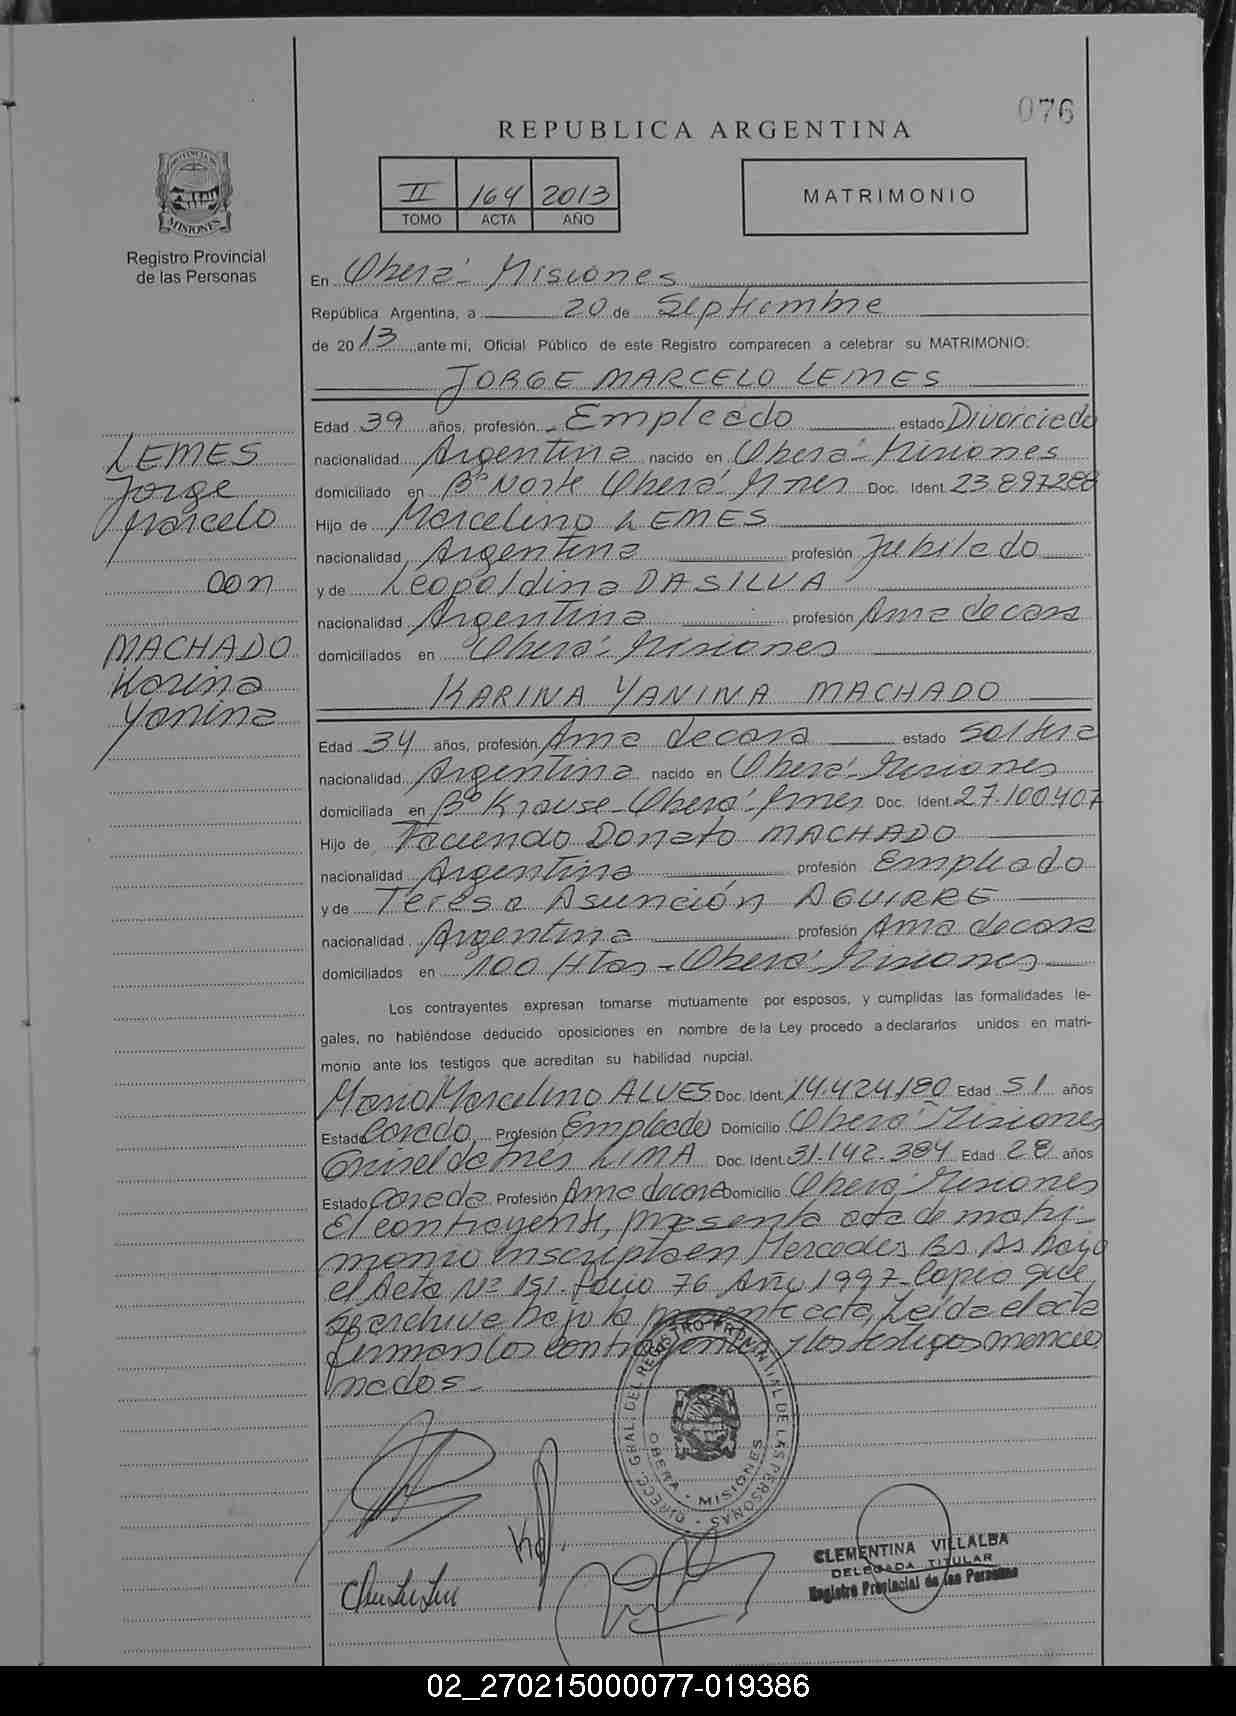 076
REPUBLICA ARGENTINA
II 164 2013
TOMO ACTA AÑO
MATRIMONIO
PROVINCIA DE
MISIONES
Registro Provincial
de las Personas
En Oberá - Misiones
República Argentina, a 20 de Septiembre
de 2013, ante mí, Oficial Público de este Registro comparecen a celebrar su MATRIMONIO:
JORGE MARCELO LEMES
Edad 39 años, profesión Empleado estado Divorciado
nacionalidad Argentina nacido en Oberá - Misiones
domiciliado en Bº Norte Oberá - Mnes Doc. Ident. 23.897.288
Hijo de Marcelino LEMES
nacionalidad Argentina profesión Jubilado
y de Leopoldina DASILVA
nacionalidad Argentina profesión Ama de casa
domiciliados en Oberá - Misiones
LEMES
Jorge
Marcelo
con
MACHADO
Karina
Yanina
KARINA YANINA MACHADO
Edad 34 años, profesión Ama de casa estado Soltera
nacionalidad Argentina nacido en Oberá - Misiones
domiciliada en Bº Krause - Oberá - Mnes Doc. Ident. 27.100.407
Hijo de Facundo Donato MACHADO
nacionalidad Argentina profesión Empleado
y de Teresa Asunción AGUIRRE
nacionalidad Argentina profesión Ama de casa
domiciliados en 100 Htas - Oberá - Misiones
Los contrayentes expresan tomarse mutuamente por esposos, y cumplidas las formalidades le-
gales, no habiéndose deducido oposiciones en nombre de la Ley procedo a declararlos unidos en matri-
monio ante los testigos que acreditan su habilidad nupcial.
Mario Marcelino ALVES Doc. Ident. 14.424.180 Edad 51 años
Estado Casado Profesión Empleado Domicilio Oberá - Misiones
Griselda Ines LIMA Doc. Ident. 31.142.384 Edad 28 años
Estado Casada Profesión Ama de casa Domicilio Oberá - Misiones
El contrayente, presenta acta de matri-
monio inscripta en Mercedes Bs. As bajo
el Acta Nº 151. Folio 76 Año 1997 - Copia que
se archiva bajo la presente acta, Leída el acta
firman los contrayentes y los testigos mencio
nados.
DIRECC. GRAL. DEL REGISTRO PROVINCIAL DE LAS PERSONAS
OBERA - MISIONES
CLEMENTINA VILLALBA
DELEGADA TITULAR
Registro Provincial de las Personas
02_270215000077-019386